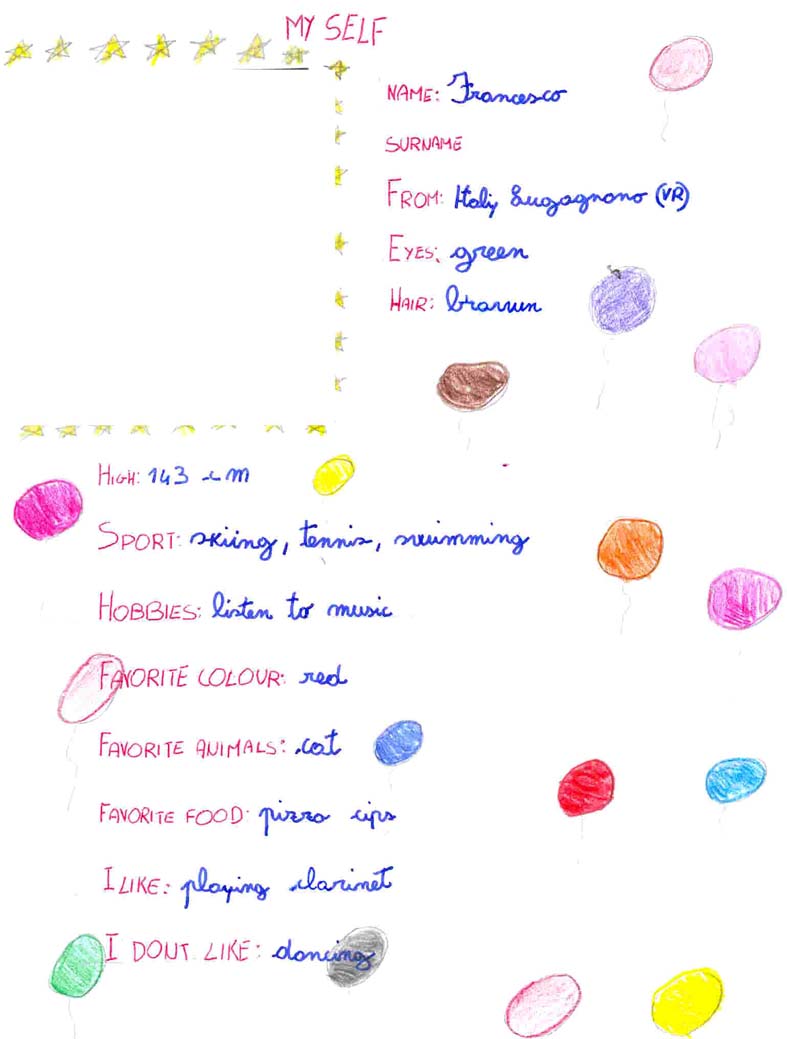 MY SELF
NAME: Francesco
SURNAME
FROM: Italy Lugagnano (VR)
EYES: green
HAIR: brawun
HIGH: 143 cm
SPORT: skiing, tennis, swimming
HOBBIES: listen to music
FAVORITE COLOUR: red
FAVORITE ANIMALS: cat
FAVORITE FOOD: pizza cips
I LIKE: playing clarinet
I DONT LIKE: dancing